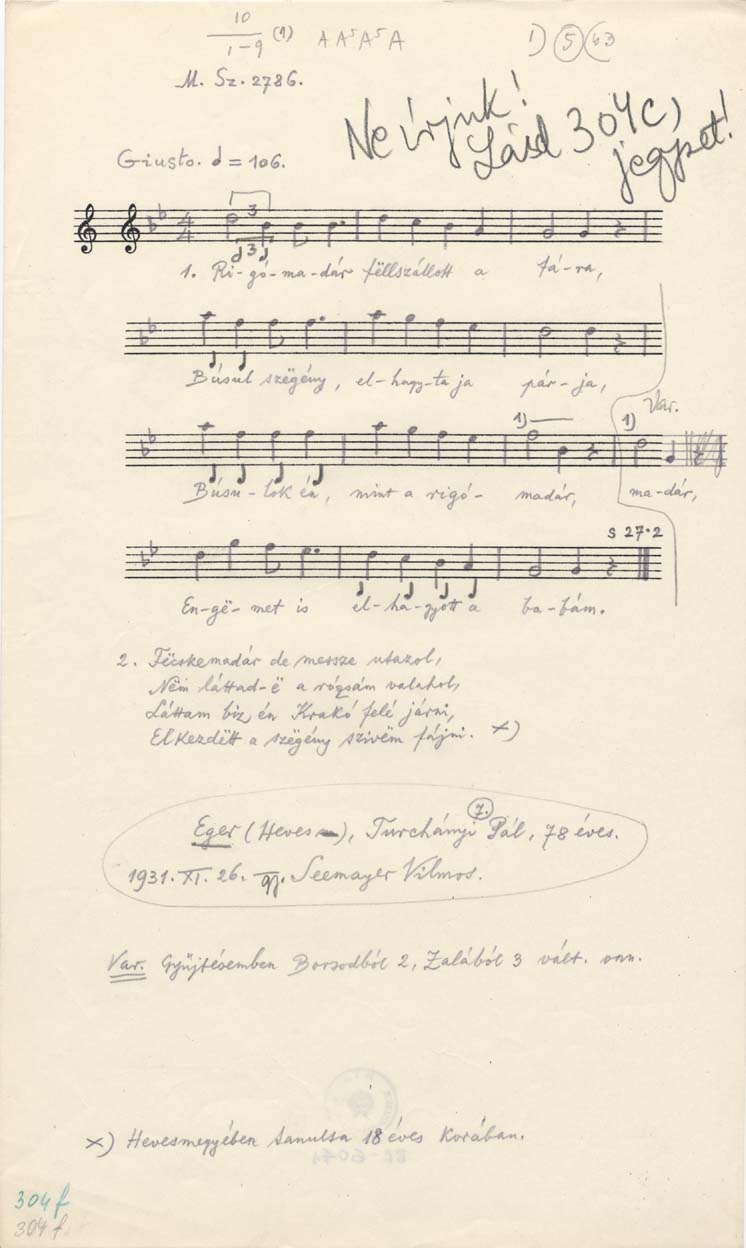 10
1-9 (1) A A⁵ A⁵ A 1) 5 (b3
M. Sz. 2786.
Ne írjuk!
Lásd 304c)
jegyzet!
Giusto. = 106.
4
4
3
3
1. Ri-gó-ma-dár fëllszállott a fá-ra,
Búsul szëgény, el-hagy-ta ja pár-ja,
Var.
1) 1)
Búsu-lok én, mint a rigó- madár, ma-dár,
S 27·2
En-gë-met is el-ha-gyott a ba-bám.
2. Fëcskemadár de messze utazol,
Nëm láttad-ë a rózsám valahol,
Láttam biz én Krakó felé járni,
Elkezdëtt a szëgény szivëm fájni. x)
7.
Eger (Heves), Turchányi Pál, 78 éves.
1931. XI. 26. gy. Seemayer Vilmos.
Var. Gyűjtésemben Borsodból 2, Zalából 3 vált. van.
x) Hevesmegyében tanulta 18 éves korában.
304 f
304 f